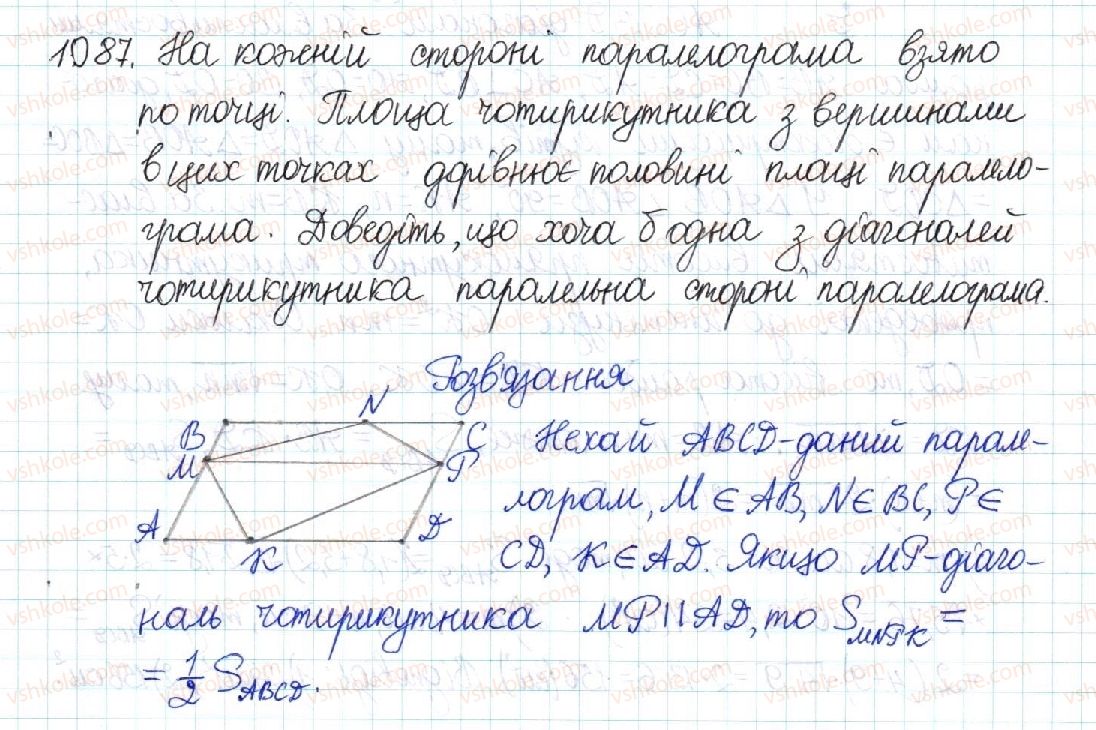 1087. На кожній стороні паралелограма взято
по точці. Площа чотирикутника з вершинами
в цих точках дорівнює половині площі паралело-
грама. Доведіть, що хоча б одна з діагоналей
чотирикутника паралельна стороні паралелограма.
Розв'язання
N
B
C
M
P
A
D
K
Нехай ABCD-даний парале-
лограм, M ∈ AB, N ∈ BC, P ∈
CD, K ∈ AD. Якщо MP-діаго-
наль чотирикутника MP || AD, то S_MNPK =
= 1/2 S_ABCD.